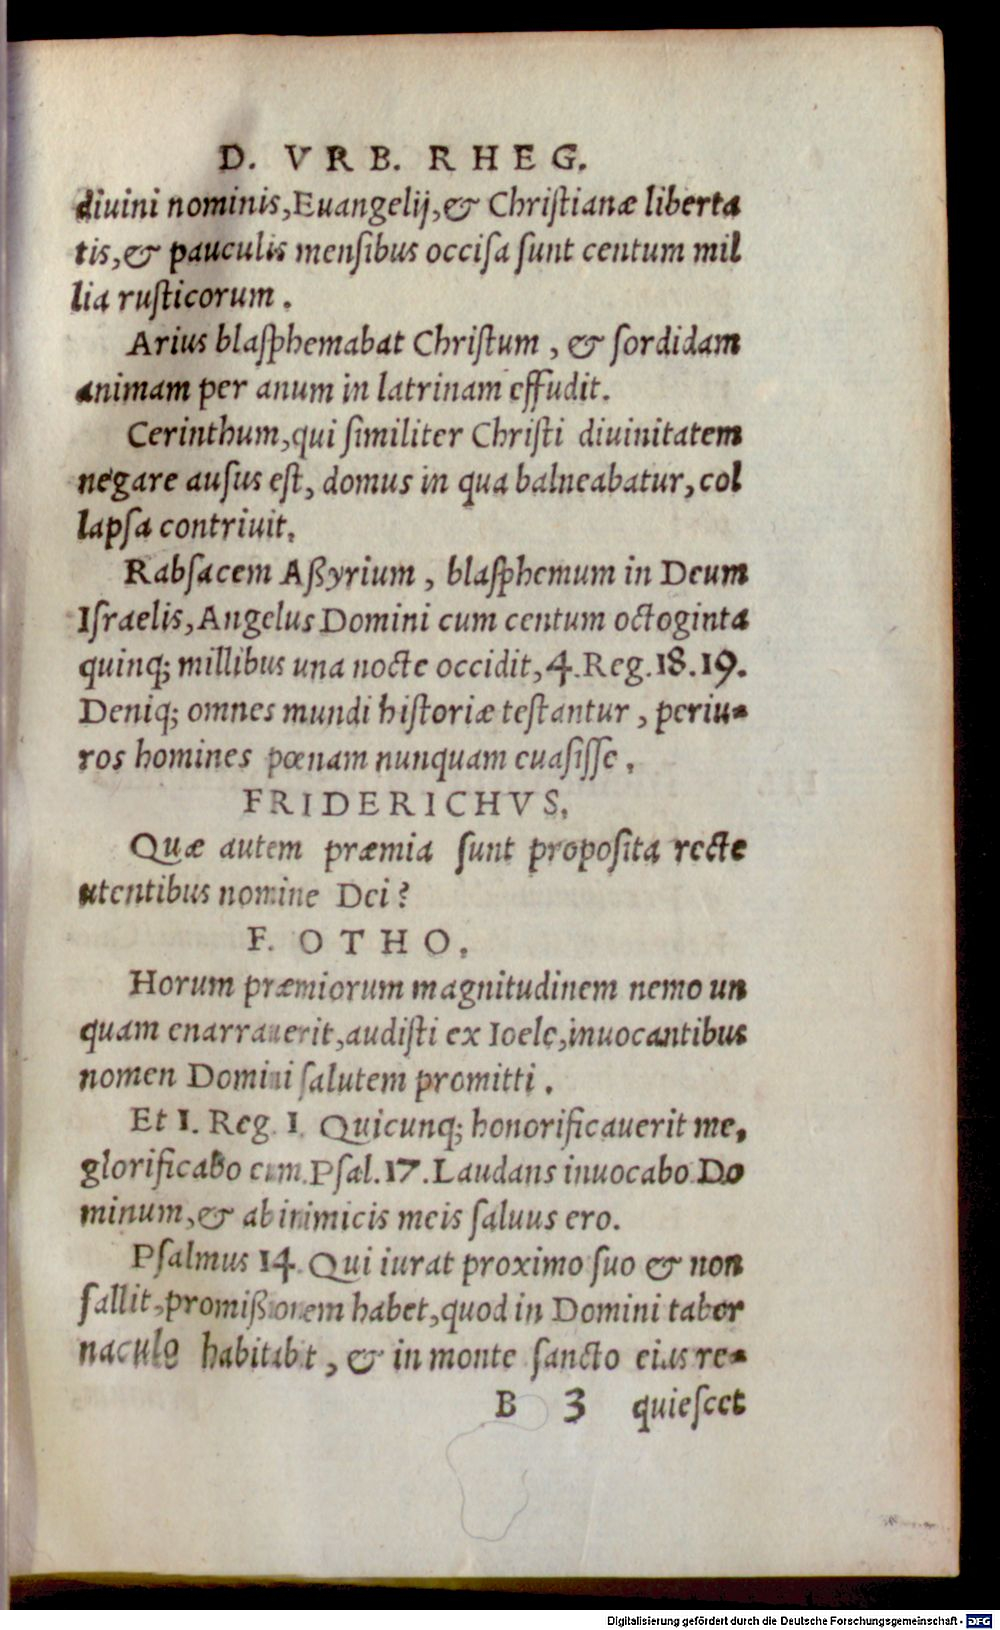 D. VRB. RHEG.
diuini nominis, Euangelij, & Chriſtianæ liberta
tis, & pauculis menſibus occiſa ſunt centum mil
lia ruſticorum.
Arius blaſphemabat Chriſtum, & ſordidam
animam per anum in latrinam effudit.
Cerinthum, qui ſimiliter Chriſti diuinitatem
negare auſus eſt, domus in qua balneabatur, col
lapſa contriuit.
Rabſacem Aßyrium, blaſphemum in Deum
Iſraelis, Angelus Domini cum centum octoginta
quinq; millibus una nocte occidit, 4. Reg. 18. 19.
Deniq; omnes mundi hiſtoriæ teſtantur, periu-
ros homines pœnam nunquam euaſiſſe.
FRIDERICHVS.
Quæ autem præmia ſunt propoſita recte
utentibus nomine Dei?
F. OTHO.
Horum præmiorum magnitudinem nemo un
quam enarrauerit, audiſti ex Ioele, inuocantibus
nomen Domini ſalutem promitti.
Et 1. Reg. 1. Quicunq; honorificauerit me,
glorificabo eum. Pſal. 17. Laudans inuocabo Do
minum, & ab inimicis meis ſaluus ero.
Pſalmus 14. Qui iurat proximo ſuo & non
fallit, promißionem habet, quod in Domini taber
naculo habitabit, & in monte ſancto eius re-
B 3 quieſcet
Digitalisierung gefördert durch die Deutsche Forschungsgemeinschaft - DFG